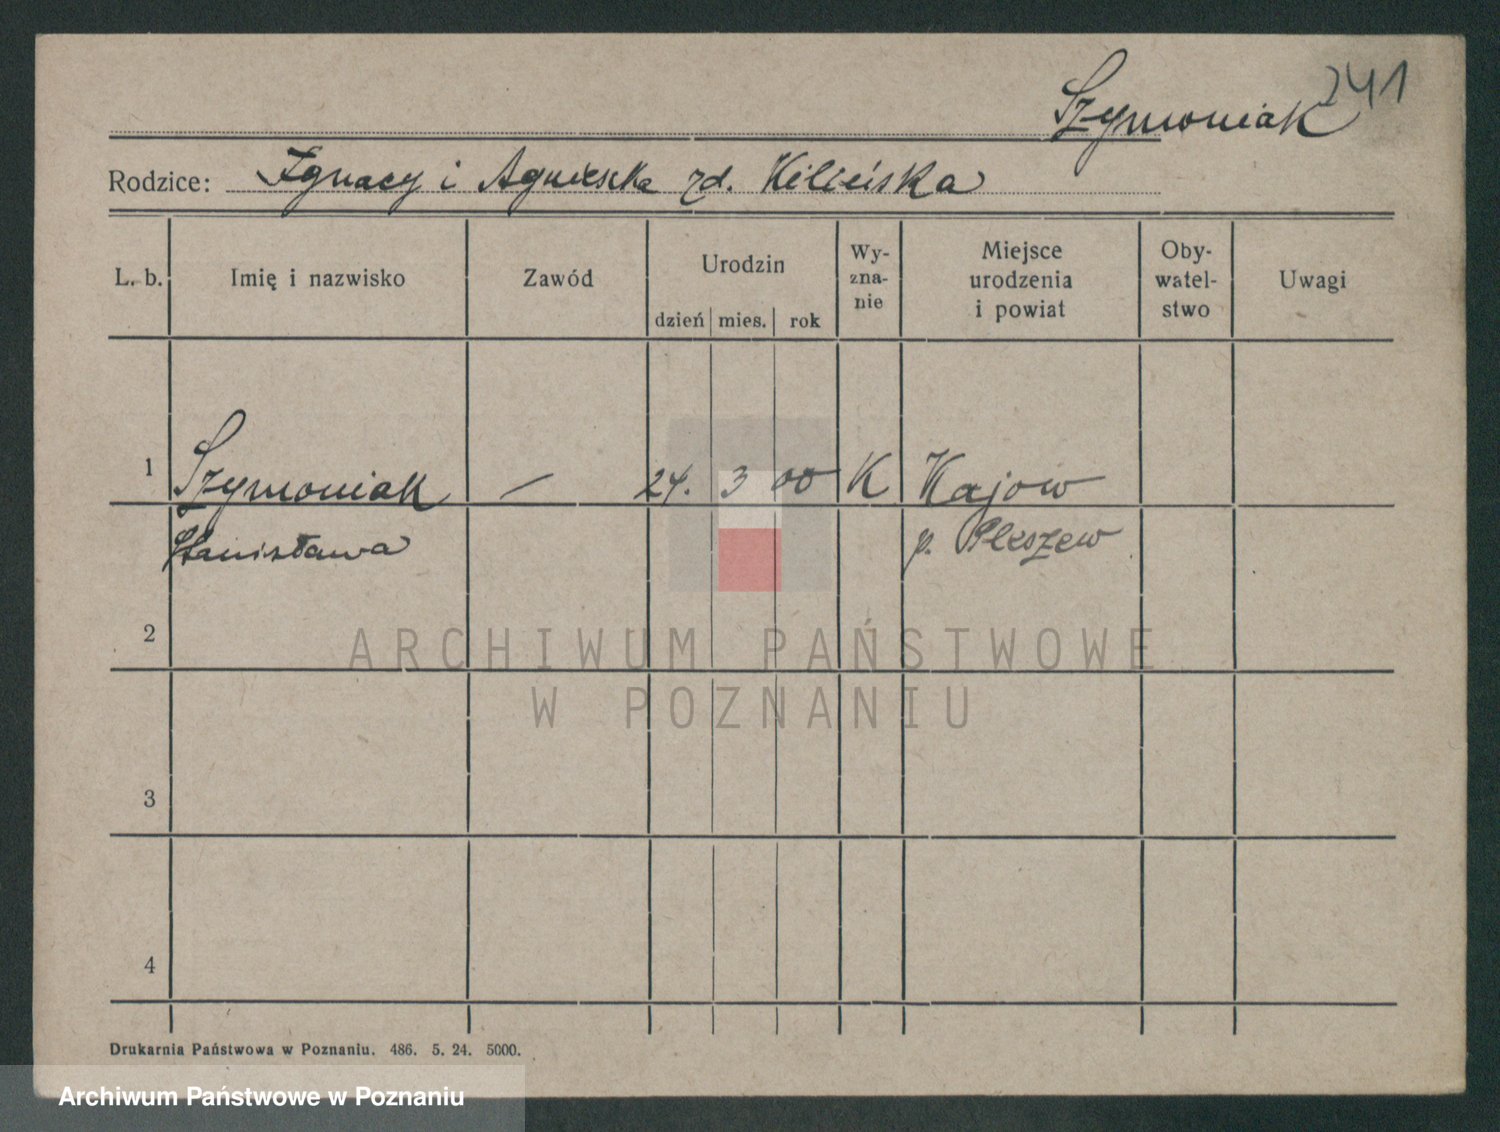 241
Szymoniak
Rodzice: Ignacy i Agnieszka zd. Kilińska
L. b. Imię i nazwisko Zawód Urodzin Wy-zna-nie Miejsce urodzenia i powiat Oby-watel-stwo Uwagi
dzień mies. rok
1 Szymoniak — 24. 3 00 K Kajow
Stanisława p. Pleszew
2
3
4
ARCHIWUM PAŃSTWOWE
W POZNANIU
Drukarnia Państwowa w Poznaniu. 486. 5. 24. 5000.
Archiwum Państwowe w Poznaniu